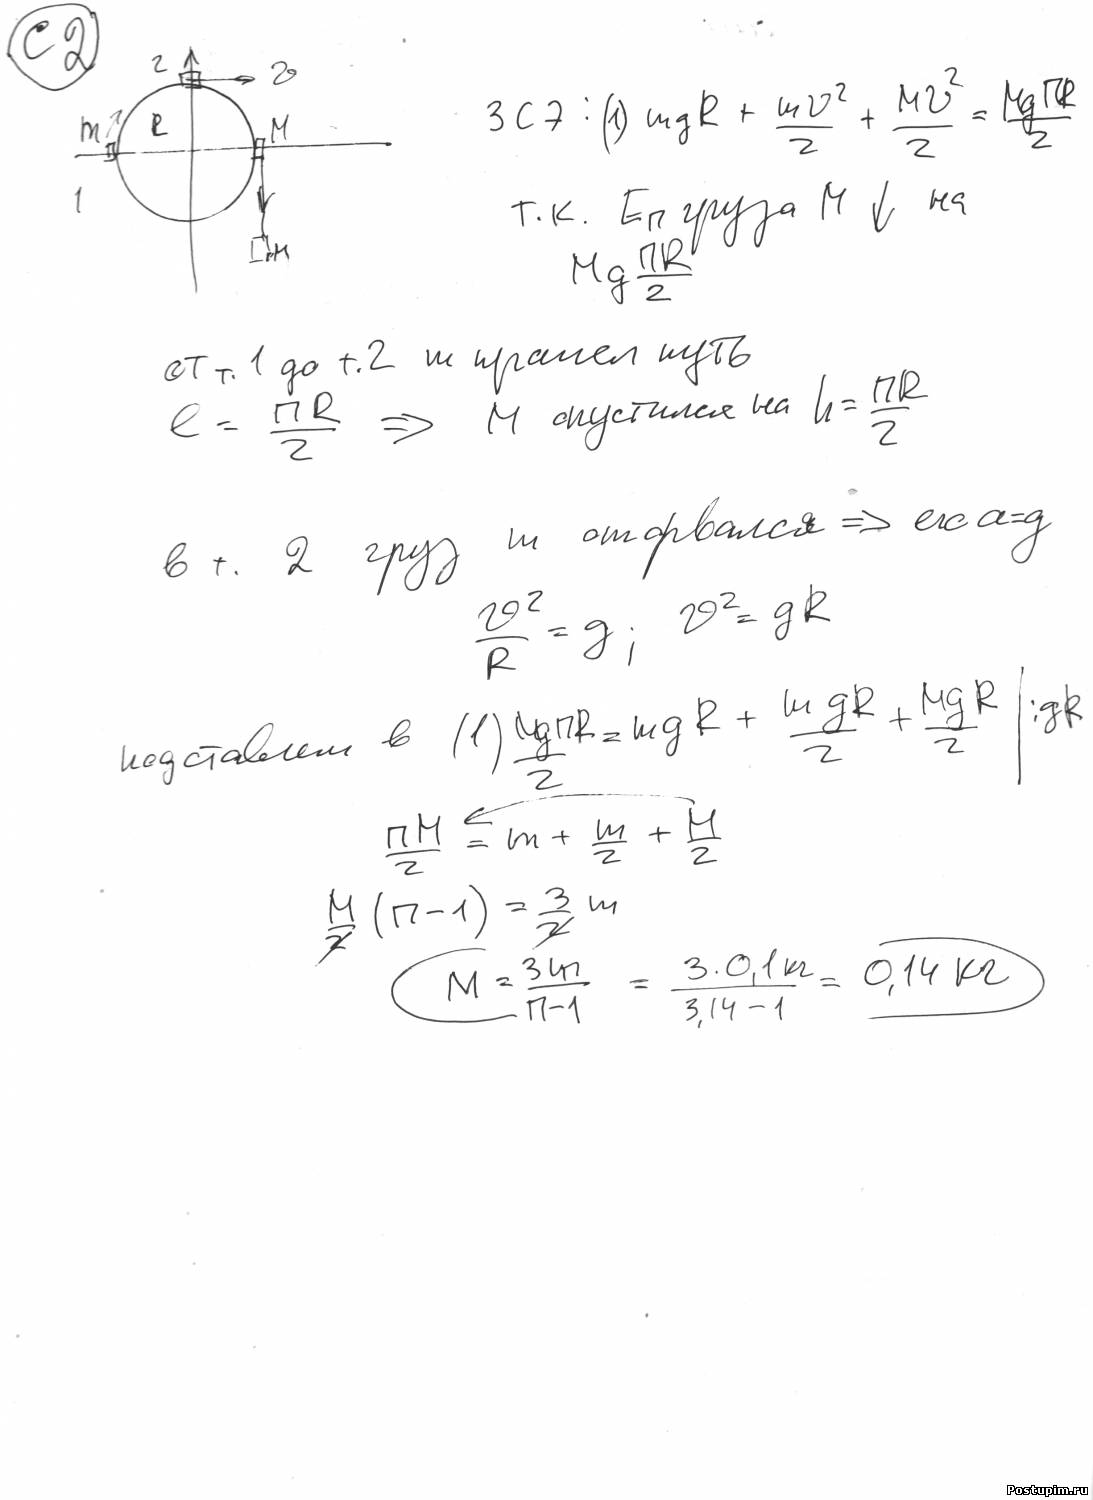 С2
2 v
m R M
1
M
ЗСЭ: (1) mgR + mv²/2 + Mv²/2 = MgПR/2
т.к. Eп груза M ↓ на
Mg ПR/2
от т.1 до т.2 m прошел путь
l = ПR/2 => M опустился на h = ПR/2
в т. 2 груз m оторвался => его a=g
v²/R = g; v² = gR
подставляем в (1) MgПR/2 = mgR + mgR/2 + MgR/2 | :gR
ПM/2 = m + m/2 + M/2
M/2 (П-1) = 3/2 m
M = 3m/(П-1) = 3·0,1кг/(3,14-1) = 0,14 кг
Postupim.ru